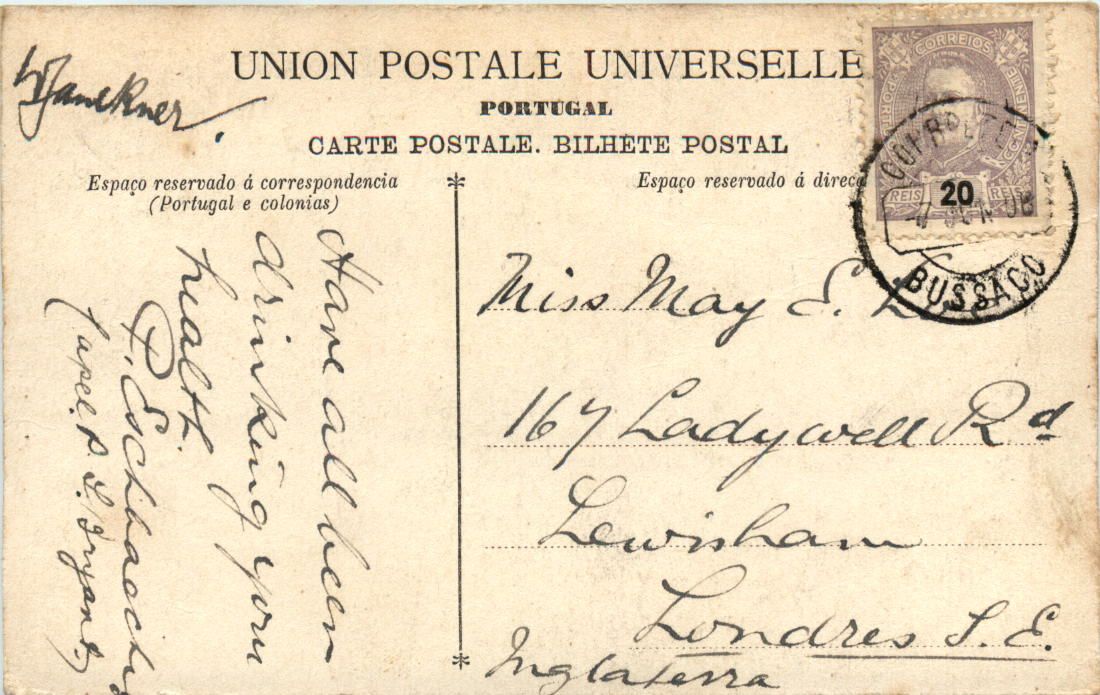 UNION POSTALE UNIVERSELLE
PORTUGAL
CARTE POSTALE. BILHETE POSTAL
Espaço reservado á correspondencia
(Portugal e colonias)
Espaço reservado á direcç
CORREIOS
20
REIS REIS
JUN 08
BUSSACO
Have all been
drinking your
health.
P. Eschbaecher
Miss May E.
167 Ladywell Rd
Lewisham
Londres S.E.
Inglaterra